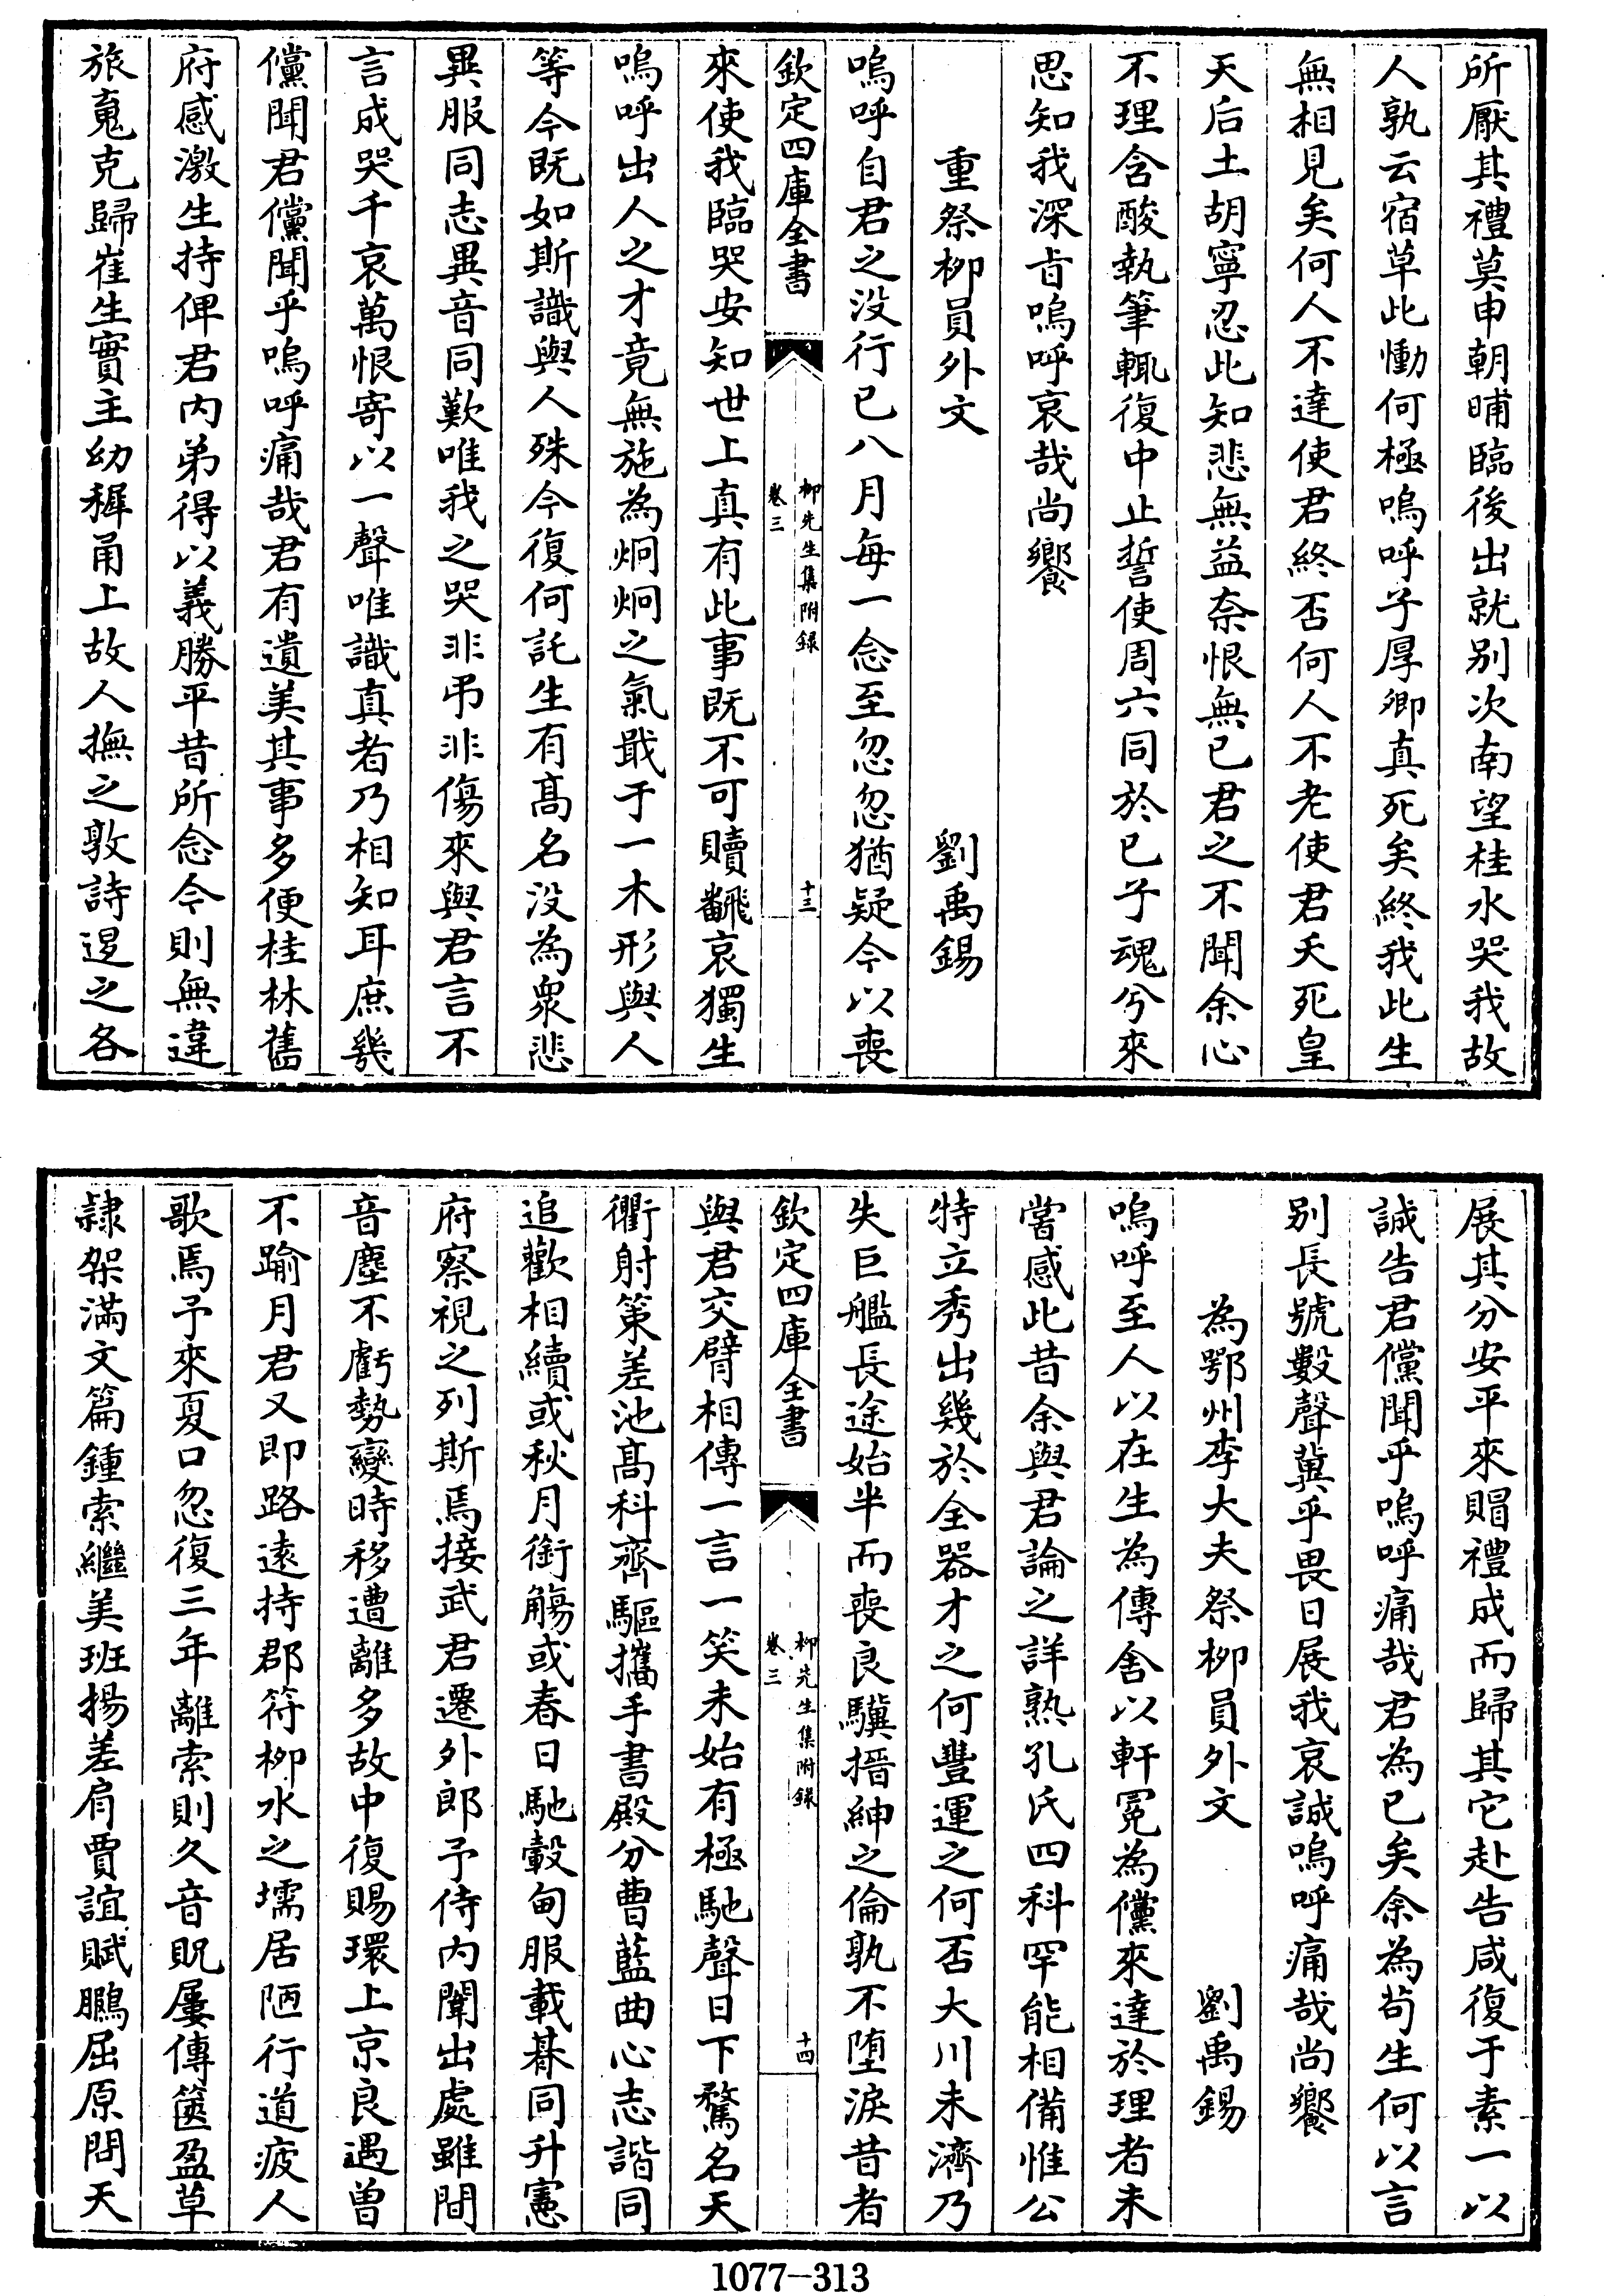 所厭其禮莫申朝晡臨後出就别次南望桂水哭我故
人孰云宿草此慟何極嗚呼子厚卿真死矣終我此生
無相見矣何人不達使君終否何人不老使君夭死皇
天后土胡寧忍此知悲無益奈恨無已君之不聞余心
不理含酸執筆輒復中止誓使周六同於已子魂兮來
思知我深㫖嗚呼哀哉尚饗
重祭栁員外文 劉禹錫
嗚呼自君之没行已八月每一念至忽忽猶疑今以喪
欽定四庫全書 栁先生集附録 卷三 十三
來使我臨哭安知世上真有此事既不可贖翻哀獨生
嗚呼出人之才竟無施為炯炯之氣戢于一木形與人
等今既如斯識與人殊今復何託生有髙名没為衆悲
異服同志異音同歎唯我之哭非弔非傷來與君言不
言成哭千哀萬恨寄以一聲唯識真者乃相知耳庶幾
儻聞君儻聞乎嗚呼痛哉君有遺美其事多便桂林舊
府感激生持俾君内弟得以義勝平昔所念今則無違
旅魂克歸崔生實主幼稺甬上故人撫之敦詩退之各
展其分安平來賵禮成而歸其它赴告咸復于素一以
誠告君儻聞乎嗚呼痛哉君為已矣余為苟生何以言
别長號數聲冀乎畏日展我哀誠嗚呼痛哉尚饗
為鄂州李大夫祭栁員外文 劉禹錫
嗚呼至人以在生為傳舍以軒冕為儻來達於理者未
嘗感此昔余與君論之詳熟孔氏四科罕能相備惟公
特立秀出幾於全器才之何豐運之何否大川未濟乃
失巨艦長途始半而喪良驥搢紳之倫孰不墮淚昔者
欽定四庫全書 栁先生集附録 卷三 十四
與君交臂相傳一言一笑未始有極馳聲日下鶩名天
衢射策差池髙科齊驅攜手書殿分曹藍曲心志諧同
追歡相續或秋月銜觴或春日馳轂甸服載朞同升憲
府察視之列斯焉接武君遷外郎予侍内闈出處雖間
音塵不虧勢變時移遭離多故中復賜環上京良遇曾
不踰月君又即路逺持郡符栁水之壖居陋行道疲人
歌焉予來夏口忽復三年離索則久音貺屢傳篋盈草
隷架滿文篇鍾索繼美班揚差肩賈誼賦鵩屈原問天
1077-313